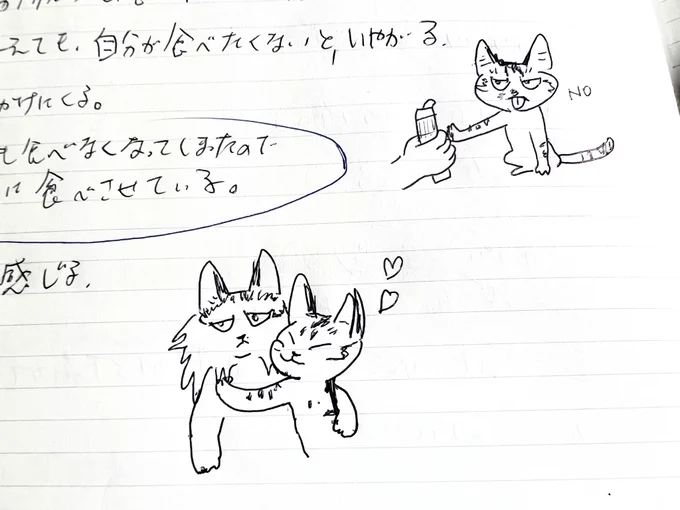 えても、自分が食べたくないと、いやがる。
かけにくる。
も食べなくなってしまったので
に食べさせている。
感じる。
NO